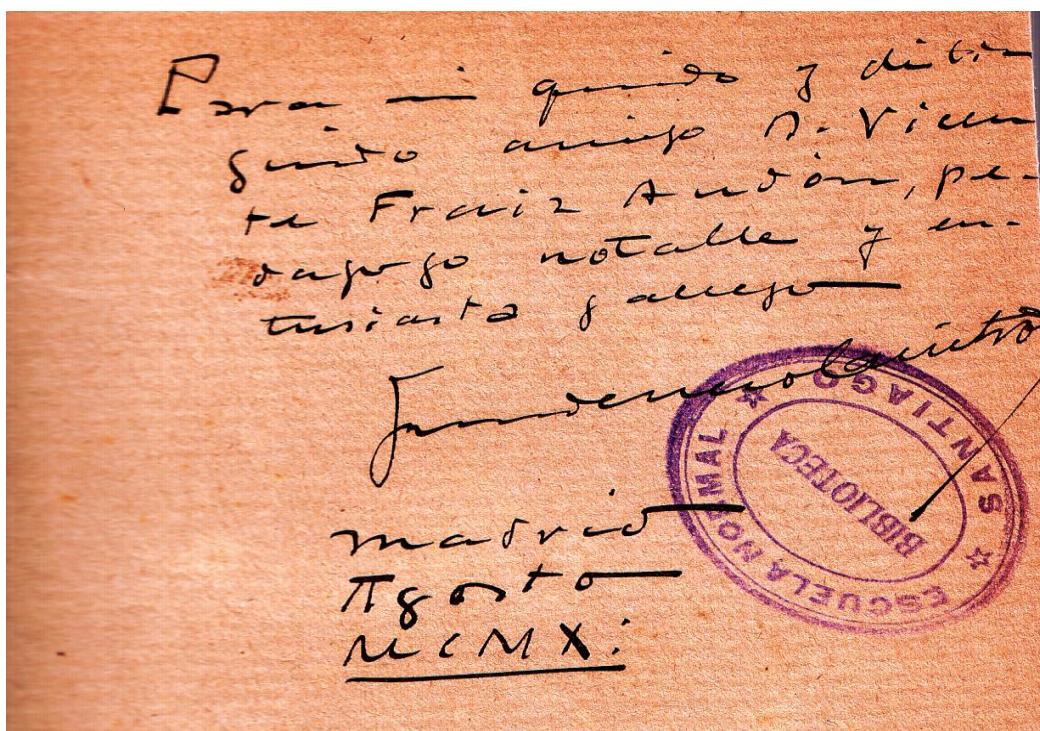 Para mi querido y distin
guido amigo D. Vicen
te Fraiz Andón, pe-
dagogo notable y en-
tusiasta gallego
Madrid
Agosto
MCMX:
ESCUELA NORMAL ☆ SANTIAGO ☆
BIBLIOTECA